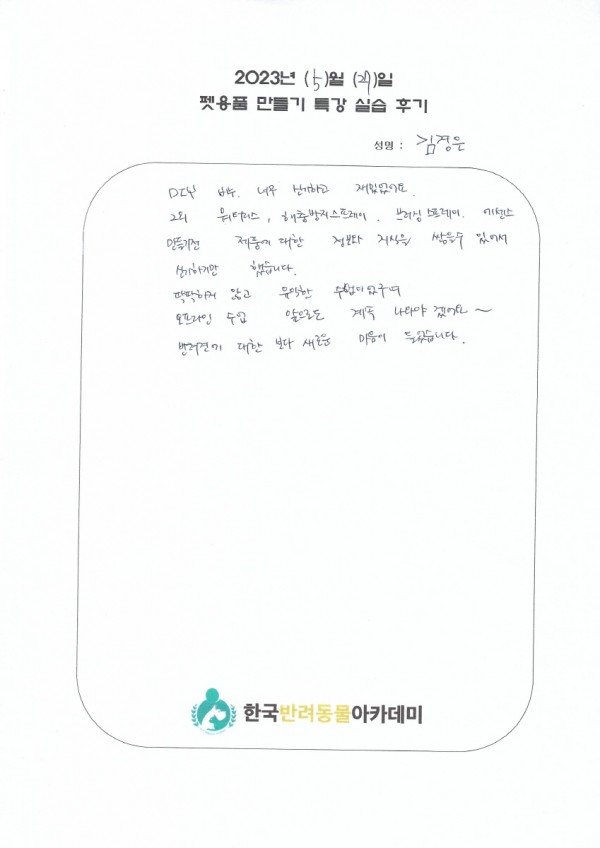 2023년 (5)월 (27)일
펫용품 만들기 특강 실습 후기
성명 : 김경은
DIY 비누. 너무 신기하고 재밌었어요.
그외 워터리스, 해충방지스프레이, 브러싱스프레이. 에센스
만들기전 제품에 대한 정보와 지식을 쌓을수 있어서
신기하기만 했습니다.
딱딱하지 않고 유익한 수업이었구여
오프라인 수업 앞으로도 계속 나와야 겠어요~
반려견에 대한 보다 새로운 마음이 들었습니다.
한국반려동물아카데미